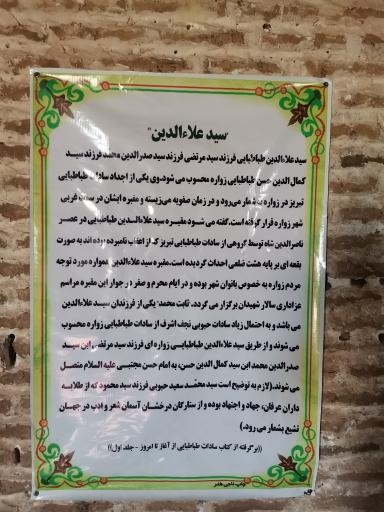 "سید علاءالدین"
سیدعلاءالدین طباطبایی فرزند سید مرتضی فرزند سیدصدرالدین محمد فرزند سید
کمال الدین حسن طباطبایی زواره محسوب می شود.وی یکی از اجداد سادات طباطبایی
تبریز در زواره به شمار می‌رود و در زمان صفویه می‌زیسته و مقبره ایشان در سمت غربی
شهر زواره قرار گرفته است.گفته می شود مقبره سید علاءالدین طباطبایی در عصر
ناصرالدین شاه توسط گروهی از سادات طباطبایی تبریز که از اعقاب نامبرده بوده اند به صورت
بقعه ای بر پایه هشت ضلعی احداث گردیده است.مقبره سید علاءالدین همواره مورد توجه
مردم زواره به خصوص بانوان شهر بوده و در ایام محرم و صفر در جوار این مقبره مراسم
عزاداری سالار شهیدان برگزار می گردد. ثابت محمد؛ یکی از فرزندان سید علاءالدین
می باشد و به احتمال زیاد سادات حبوبی نجف اشرف از سادات طباطبایی زواره محسوب
می شوند و از طریق سید علاءالدین طباطبایی زواره ای فرزند سید مرتضی ابن سید
صدرالدین محمد ابن سید کمال الدین حسن، به امام حسن مجتبی علیه السلام متصل
می شوند.(لازم به توضیح است سید محمّد سعید حبوبی فرزند سید محمود که از طلایه
داران عرفان، جهاد و اجتهاد بوده و از ستارگان درخشان آسمان شعر و ادب در جهان
تشیع بشمار می رود.)
((برگرفته از کتاب سادات طباطبایی از آغاز تا امروز - جلد اول))